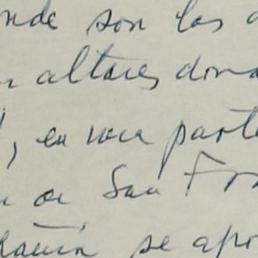 nde son las
altares dond
, en una parte
San Fra
se apr